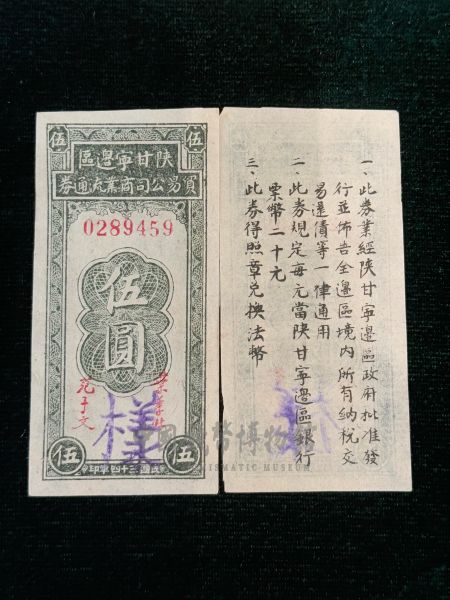 伍 伍
陝甘寧邊區
貿易公司商業流通券
0289459
伍圓
葉季壯
范子文
樣
伍 伍
中華民國三十四年印
一、此券業經陝甘寧邊區政府批准發
行並佈告全邊區境內所有納稅交
易還債等一律通用
二、此券規定每元當陝甘寧邊區銀行
票幣二十元
三、此券得照章兌換法幣
中國錢幣博物館
NUMISMATIC MUSEUM